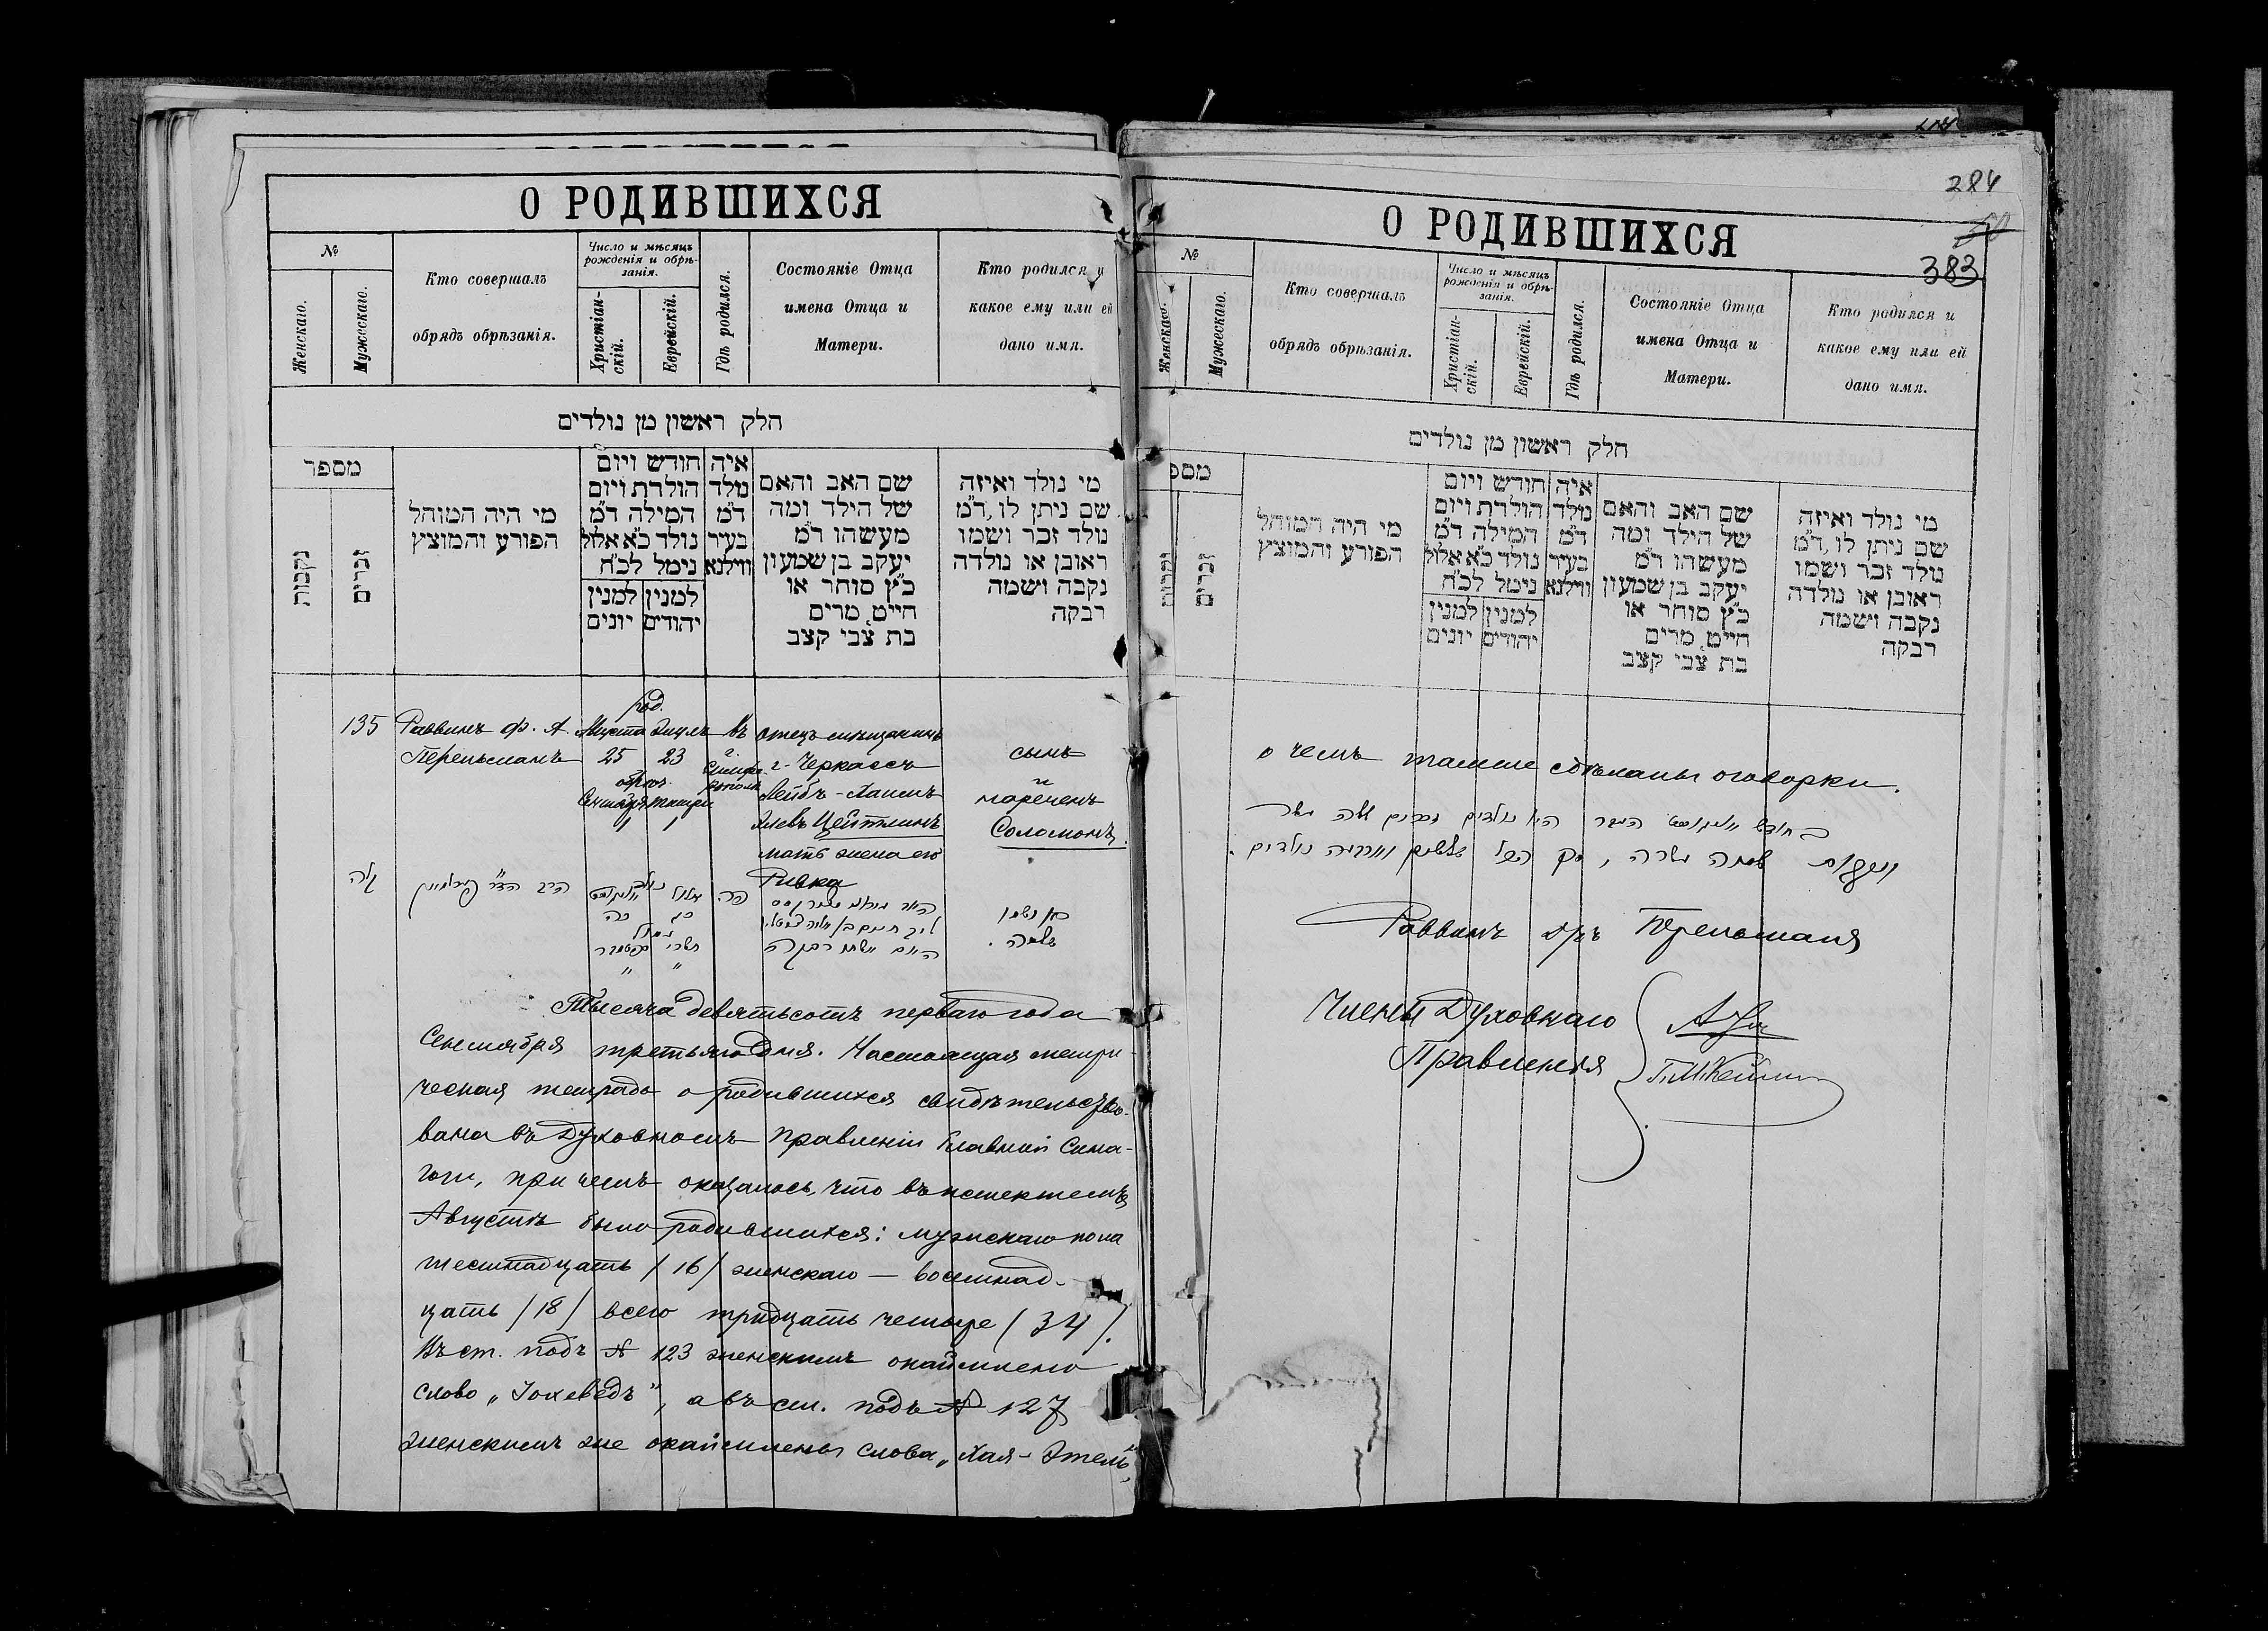 О РОДИВШИХСЯ
№
Женскаго.
Мужескаго.
Кто совершалъ
обрядъ обрѣзанія.
Число и мѣсяцъ
рожденія и обрѣ-
занія.
Христіан-
скій.
Еврейскій.
Гдѣ родился.
Состояніе Отца
имена Отца и
Матери.
Кто родился и
какое ему или ей
дано имя.
חלק ראשון מן נולדים
מספר
נקבות
זכרים
מי היה המוהל
הפורע והמוצץ
חודש ויום
הולדת ויום
המילה ד"מ
נולד כ"א אלול
נימל לכ"ח
למנין למנין
יהודים יונים
איה
נולד
ד"מ
בעיר
ווילנא
שם האב והאם
של הילד ומה
מעשהו ד"מ
יעקב בן שמעון
כ"ץ סוחר או
חייט מרים
בת צבי קצב
מי נולד ואיזה
שם ניתן לו ד"מ
נולד זכר ושמו
ראובן או נולדה
נקבה ושמה
רבקה
135
Раввинъ Ф. А.
Перельманъ
род.
Августа Элулъ
25 23
обрѣз.
Сентября тишри
1 1
въ
г.
Симфе-
рополѣ
отецъ мѣщанинъ
г. Черкассъ
Лейбъ-Хаимъ
Цейтлинъ
мать жена его
Ривка
сынъ
и
нареченъ
Соломонъ.
קלה
נולד
אלול
כג כה
תשרי
" "
פה
בן ושמו
שלמה.
Тысяча девятьсотъ перваго года
Сентября третьяго дня. Настоящая метри-
ческая тетрадь о родившихся свидѣтельство-
вана въ Духовномъ Правленіи Главной Сина-
гоги, при чемъ оказалось, что въ истекшемъ
Августѣ было родившихся: мужскаго пола
шестнадцать /16/ женскаго — восемнад-
цать /18/ всего тридцать четыре /34/.
Въ ст. подъ № 123 женскимъ окаймлено
слово „Іохеведъ", а въ ст. подъ № 127
женскимъ же окаймлены слова „Хая-Этель"
284
50
383
О РОДИВШИХСЯ
№
Женскаго.
Мужескаго.
Кто совершалъ
обрядъ обрѣзанія.
Число и мѣсяцъ
рожденія и обрѣ-
занія.
Христіан-
скій.
Еврейскій.
Гдѣ родился.
Состояніе Отца
имена Отца и
Матери.
Кто родился и
какое ему или ей
дано имя.
חלק ראשון מן נולדים
מספ
נקבות
זכרים
מי היה המוהל
הפורע והמוצץ
חודש ויום
הולדת ויום
המילה ד"מ
נולד כ"א אלול
נימל לכ"ח
למנין למנין
יהודים יונים
איה
נולד
ד"מ
בעיר
ווילנא
שם האב והאם
של הילד ומה
מעשהו ד"מ
יעקב בן שמעון
כ"ץ סוחר או
חייט מרים
בת צבי קצב
מי נולד ואיזה
שם ניתן לו ד"מ
נולד זכר ושמו
ראובן או נולדה
נקבה ושמה
רבקה
о чемъ также сдѣланы оговорки.
נולדים זכרים ששה עשר
ונקבות שמנה עשרה, סך הכל שלשים וארבעה נולדים.
Раввинъ д-ръ Перельманъ
Члены Духовнаго
Правленія